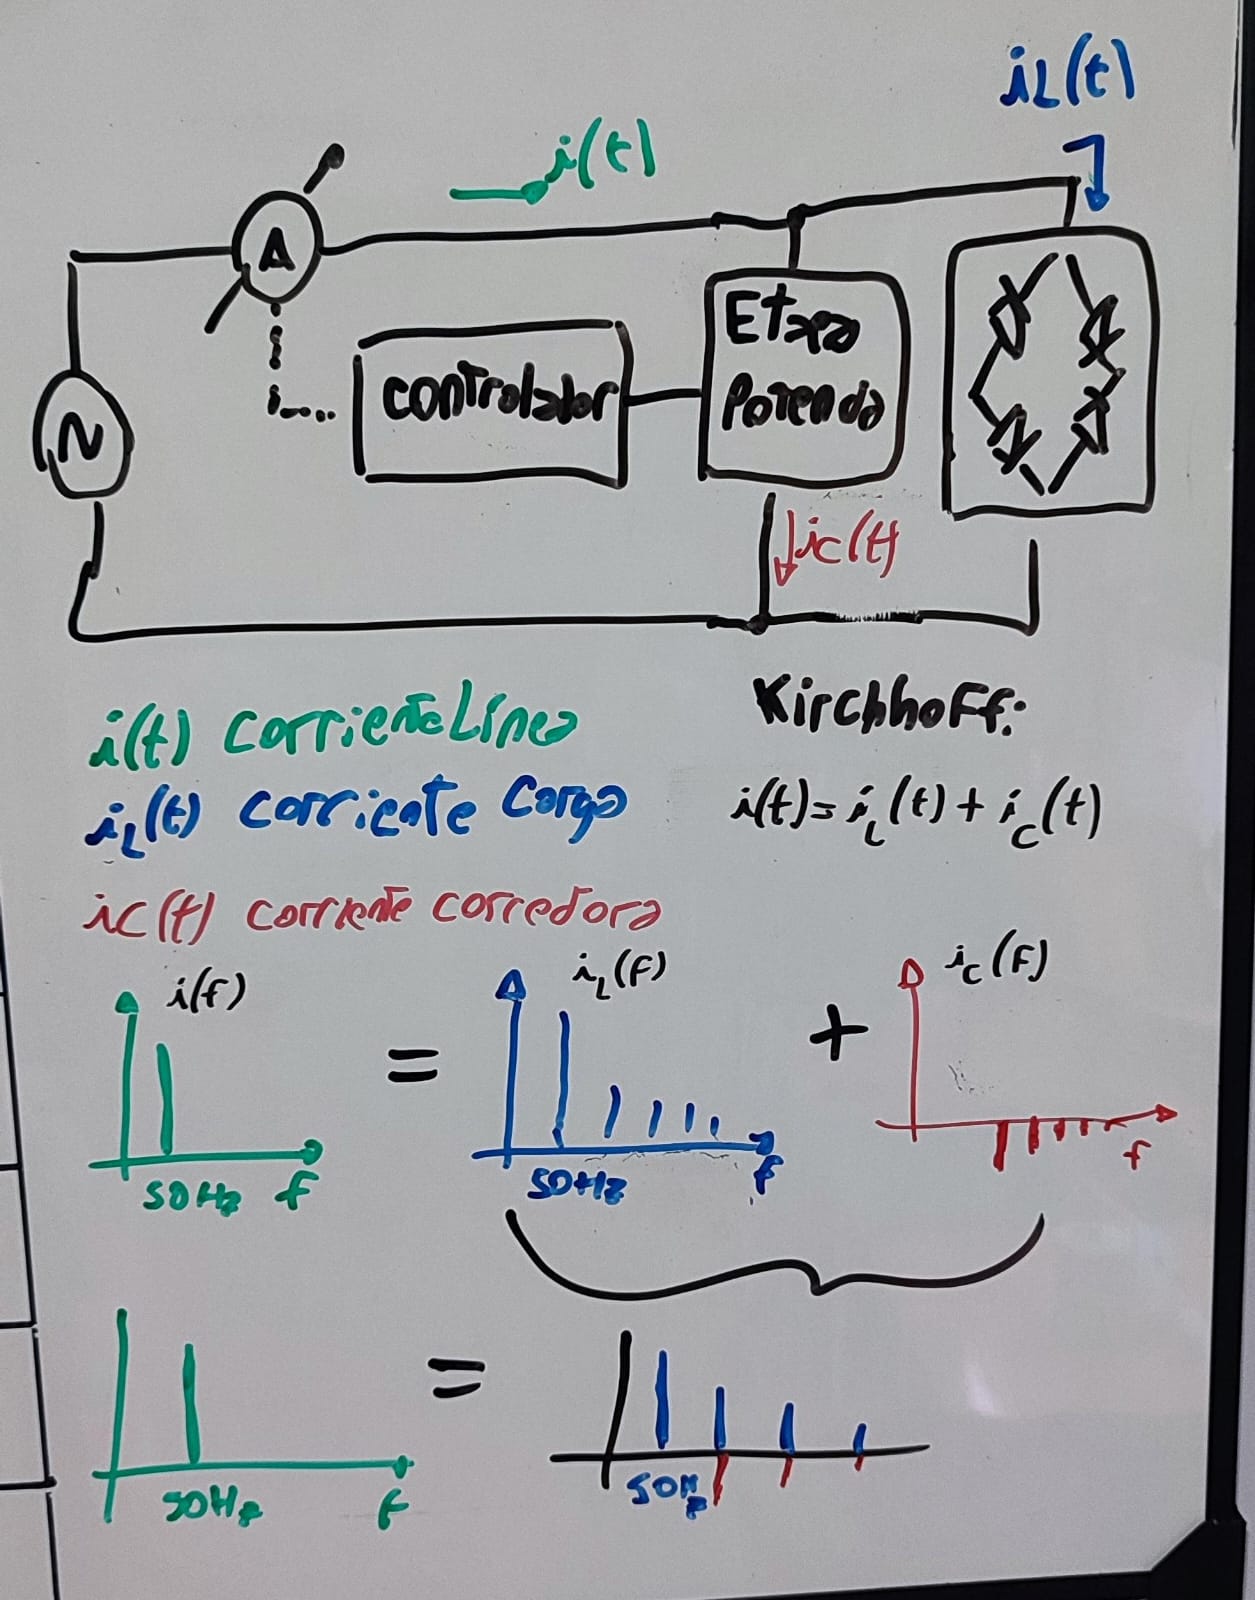 iL(t)
i(t)
A
N
Controlador
Etapa
Potencia
ic(t)
i(t) corriente Línea
iL(t) corriente Carga
ic(t) corriente corredora
Kirchhoff:
i(t) = iL(t) + ic(t)
i(f)
=
iL(f)
+
ic(f)
50Hz f
50Hz f
f
=
50Hz f
50Hz